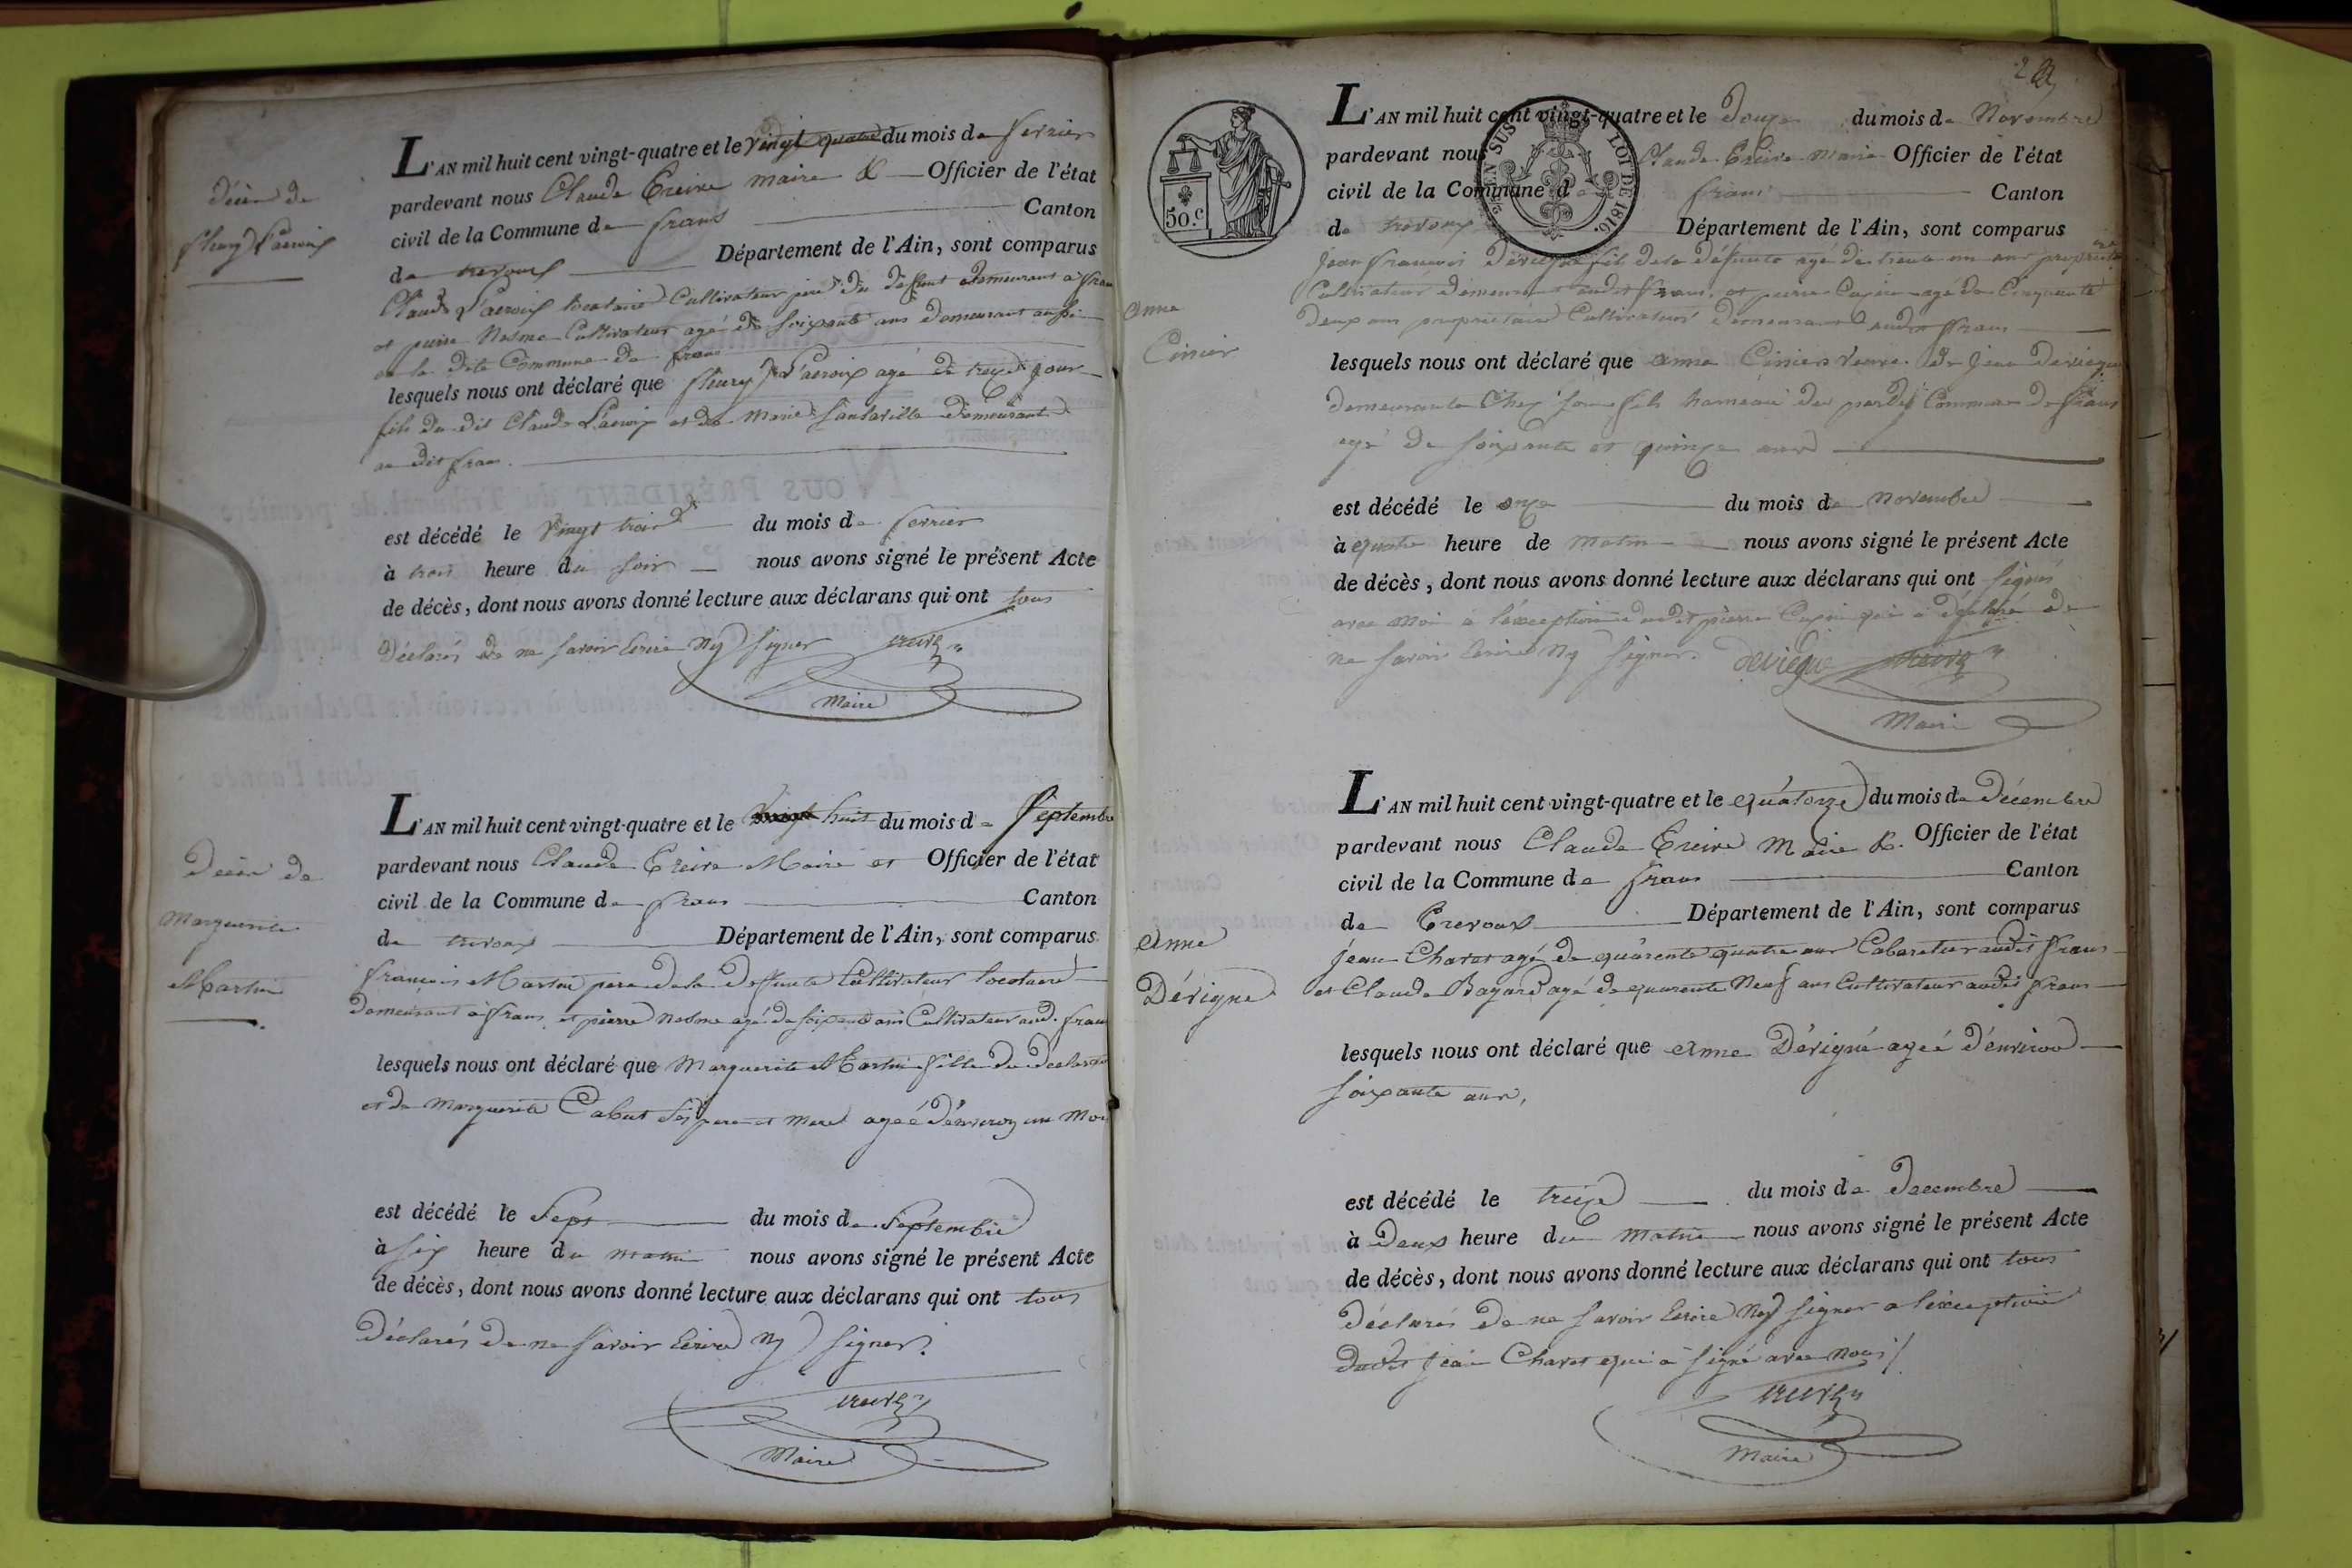 décès de
fleury Lacroix
L'AN mil huit cent vingt-quatre et le Vingt quatre du mois de fevrier
pardevant nous Claude Creive maire & Officier de l'état
civil de la Commune de frans Canton
de trevoux Département de l'Ain, sont comparus
Claude Lacroix locataire Cultivateur pere du deffunt demeurant a fran
et pierre Nesme Cultivateur agé de soixante ans demeurant aussi
en la dite Commune de frans
lesquels nous ont déclaré que fleury Lacroix agé de treize jour
fils du dit Claude Lacroix et de Marie demeurant
au dit fran.
est décédé le Vingt trois du mois de fevrier
à trois heure du soir nous avons signé le présent Acte
de décès, dont nous avons donné lecture aux déclarans qui ont tous
déclarés de ne savoir Ecrire Ny signer
Maire
Décès de
Marguerite
Martin
L'AN mil huit cent vingt-quatre et le huit du mois de Septembre
pardevant nous Claude Creive Maire et Officier de l'état
civil de la Commune de frans Canton
de trevoux Département de l'Ain, sont comparus
francois Martin pere de la deffunte Cultivateur locataire
demeurant à frans et pierre Nesme agé de soixante ans Cultivateur aud. frans
lesquels nous ont déclaré que Marguerite Martin fille du déclarant
et de Marguerite Cabut Ses pere et Mere agée d'environ un Mois
est décédé le Sept du mois de Septembre
à six heure du matin nous avons signé le présent Acte
de décès, dont nous avons donné lecture aux déclarans qui ont tous
Déclarés de ne savoir Ecrire Ny Signer.
Maire
2
50.c
EN SUS
LOI DE 1816.
Anne
Cinier
L'AN mil huit cent vingt-quatre et le Douze du mois de Novembre
pardevant nous Claude Creive Maire Officier de l'état
civil de la Commune de frans Canton
de trevoux Département de l'Ain, sont comparus
jean francois fils de la défunte agé de trente un ans propriétaire
Cultivateur demeurant audit frans, et pierre agé de Cinquante
deux ans propriétaire Cultivateur demeurant audit frans
lesquels nous ont déclaré que anne Cinier Veuve de jean
demeurante Chez son fils hameau du Commune de frans
agé de soixante et quinze ans
est décédé le onze du mois de Novembre
à quatre heure de Matin nous avons signé le présent Acte
de décès, dont nous avons donné lecture aux déclarans qui ont signés
avec Moi a l'exception dudit pierre qui a déclaré de
ne savoir Ecrire Ny Signer. devigue
Maire
Anne
Dérigne
L'AN mil huit cent vingt-quatre et le quatorze du mois de Décembre
pardevant nous Claude Creive Maire &. Officier de l'état
civil de la Commune de frans Canton
de Trevoux Département de l'Ain, sont comparus
jean Charet agé de quarente quatre ans Cabaretier audit frans
et Claude Bayard agé de quarente Neuf ans Cultivateur audit frans
lesquels nous ont déclaré que Anne Dérigné agée d'environ
soixante ans,
est décédé le treize du mois de Decembre
à Deux heure du Matin nous avons signé le présent Acte
de décès, dont nous avons donné lecture aux déclarans qui ont tous
déclarés de ne savoir Ecrire Ny signer a l'exception
dudit jean Charet qui a signé avec nous
Maire